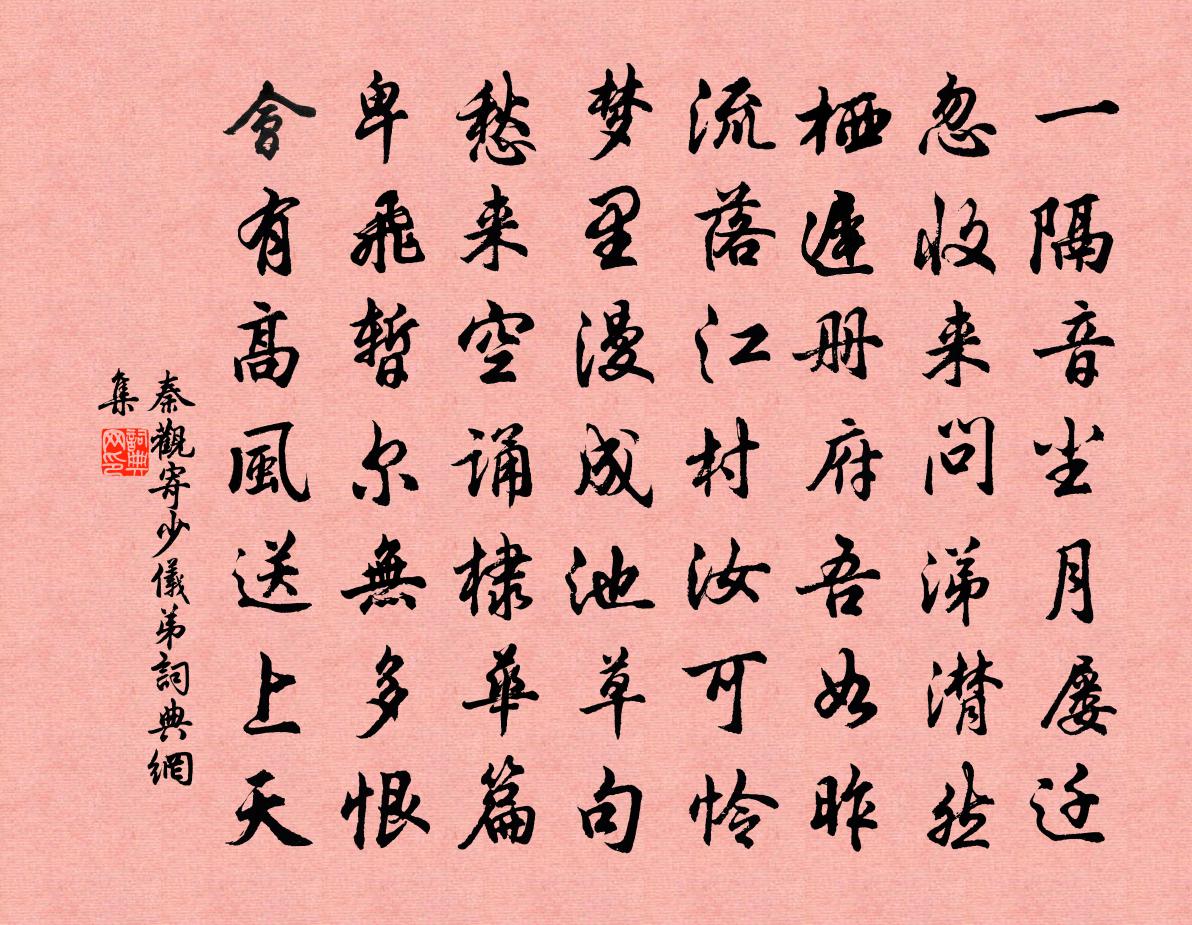 一隔音尘月屡迁
忽收来问涕潸然
栖遅册府吾如昨
流落江村汝可怜
梦里漫成池草句
愁来空诵棣华篇
卑飛暂尔無多恨
會有髙風送上天
秦觀寄少儀弟詞典網
集
詞典
网印